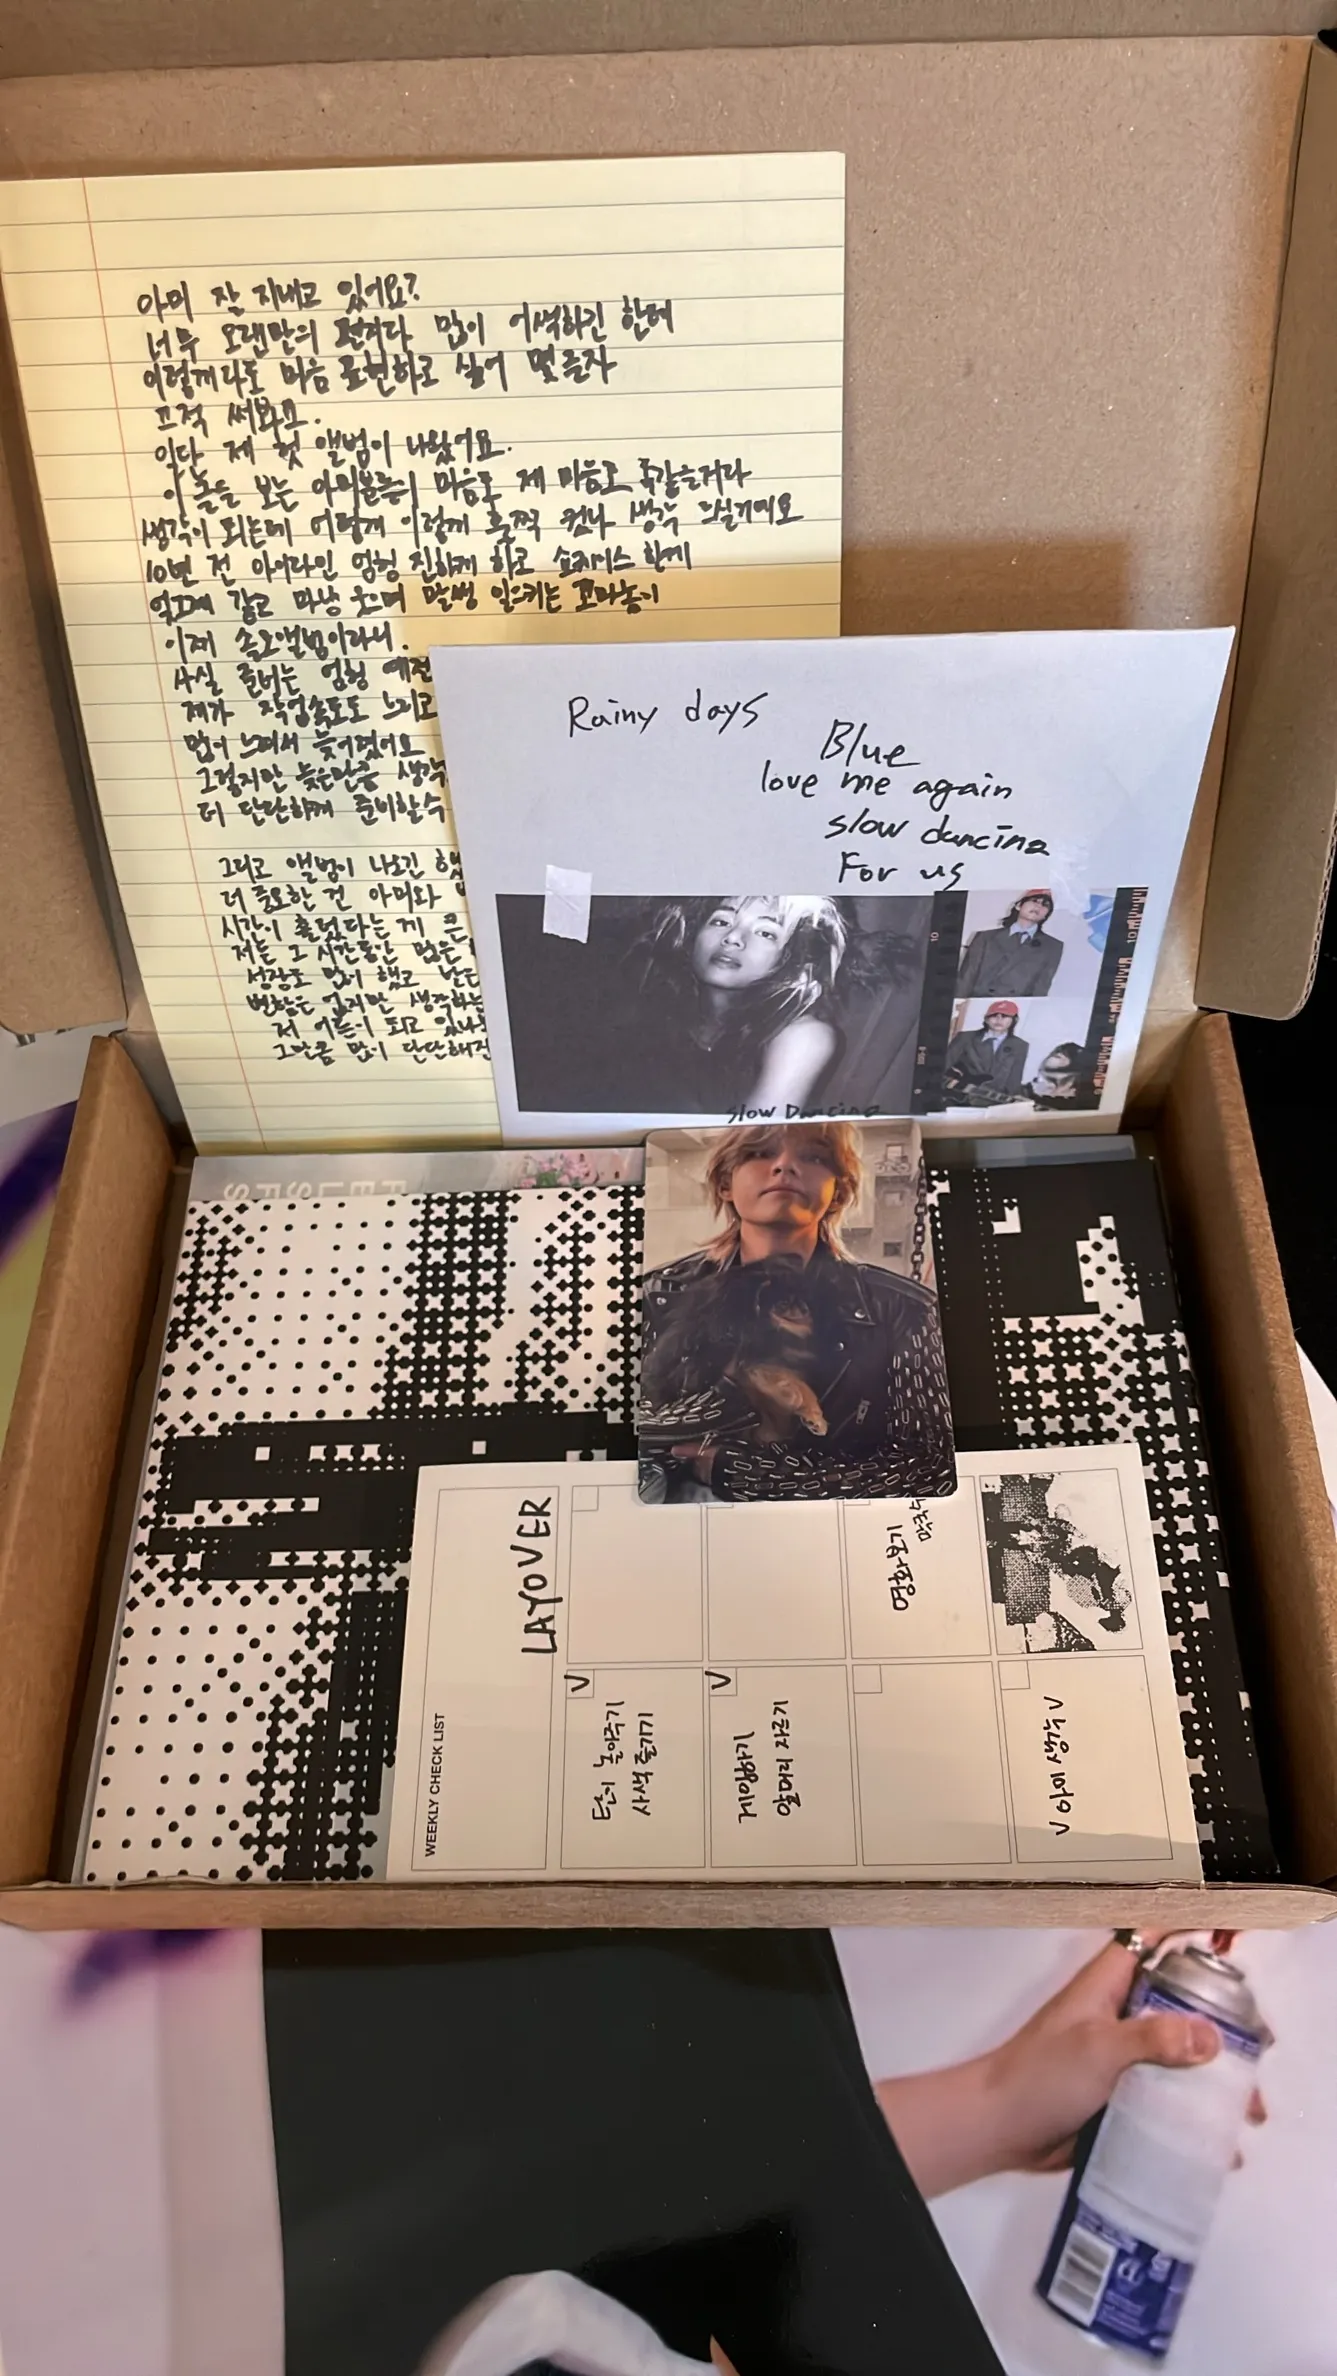 아미 잘 지내고 있어요?
너무 오랜만의 편지다 많이 어색하긴 한데
이렇게라도 마음 표현하고 싶어 몇글자
끄적 써봐요.
일단 제 첫 앨범이 나왔어요.
이 글을 보는 아미분들의 마음도 제 마음도 똑같을거라
생각이 되는데 어떻게 이렇게 훌쩍 컸나 생각 드실거에요
10년 전 아이라인 엄청 진하게 하고 쇼케이스 한게
엊그제 같고 마냥 웃으며 말썽 일으키는 꼬마놈이
이제 솔로앨범이라니.
사실 준비는 엄청 예전
제가 작업속도도 느리고
많이 느려서 늦어졌어요
그렇지만 늦은만큼 생각
더 단단하게 준비할수
그리고 앨범이 나오긴 했
더 중요한 건 아미와
시간이 흘렀다는 게 큰
저는 그 시간동안 많은
성장도 많이 했고 남은
변함은 없지만 생각하는
저 어른이 되고 있나
그만큼 많이 단단해진
Rainy days
Blue
love me again
slow dancing
For us
Slow Dancing
LAYOVER
WEEKLY CHECK LIST
영화보기
V
탄이 놀아주기
사색 즐기기
V
게임하기
앞머리 자르기
V 아미 생각 V